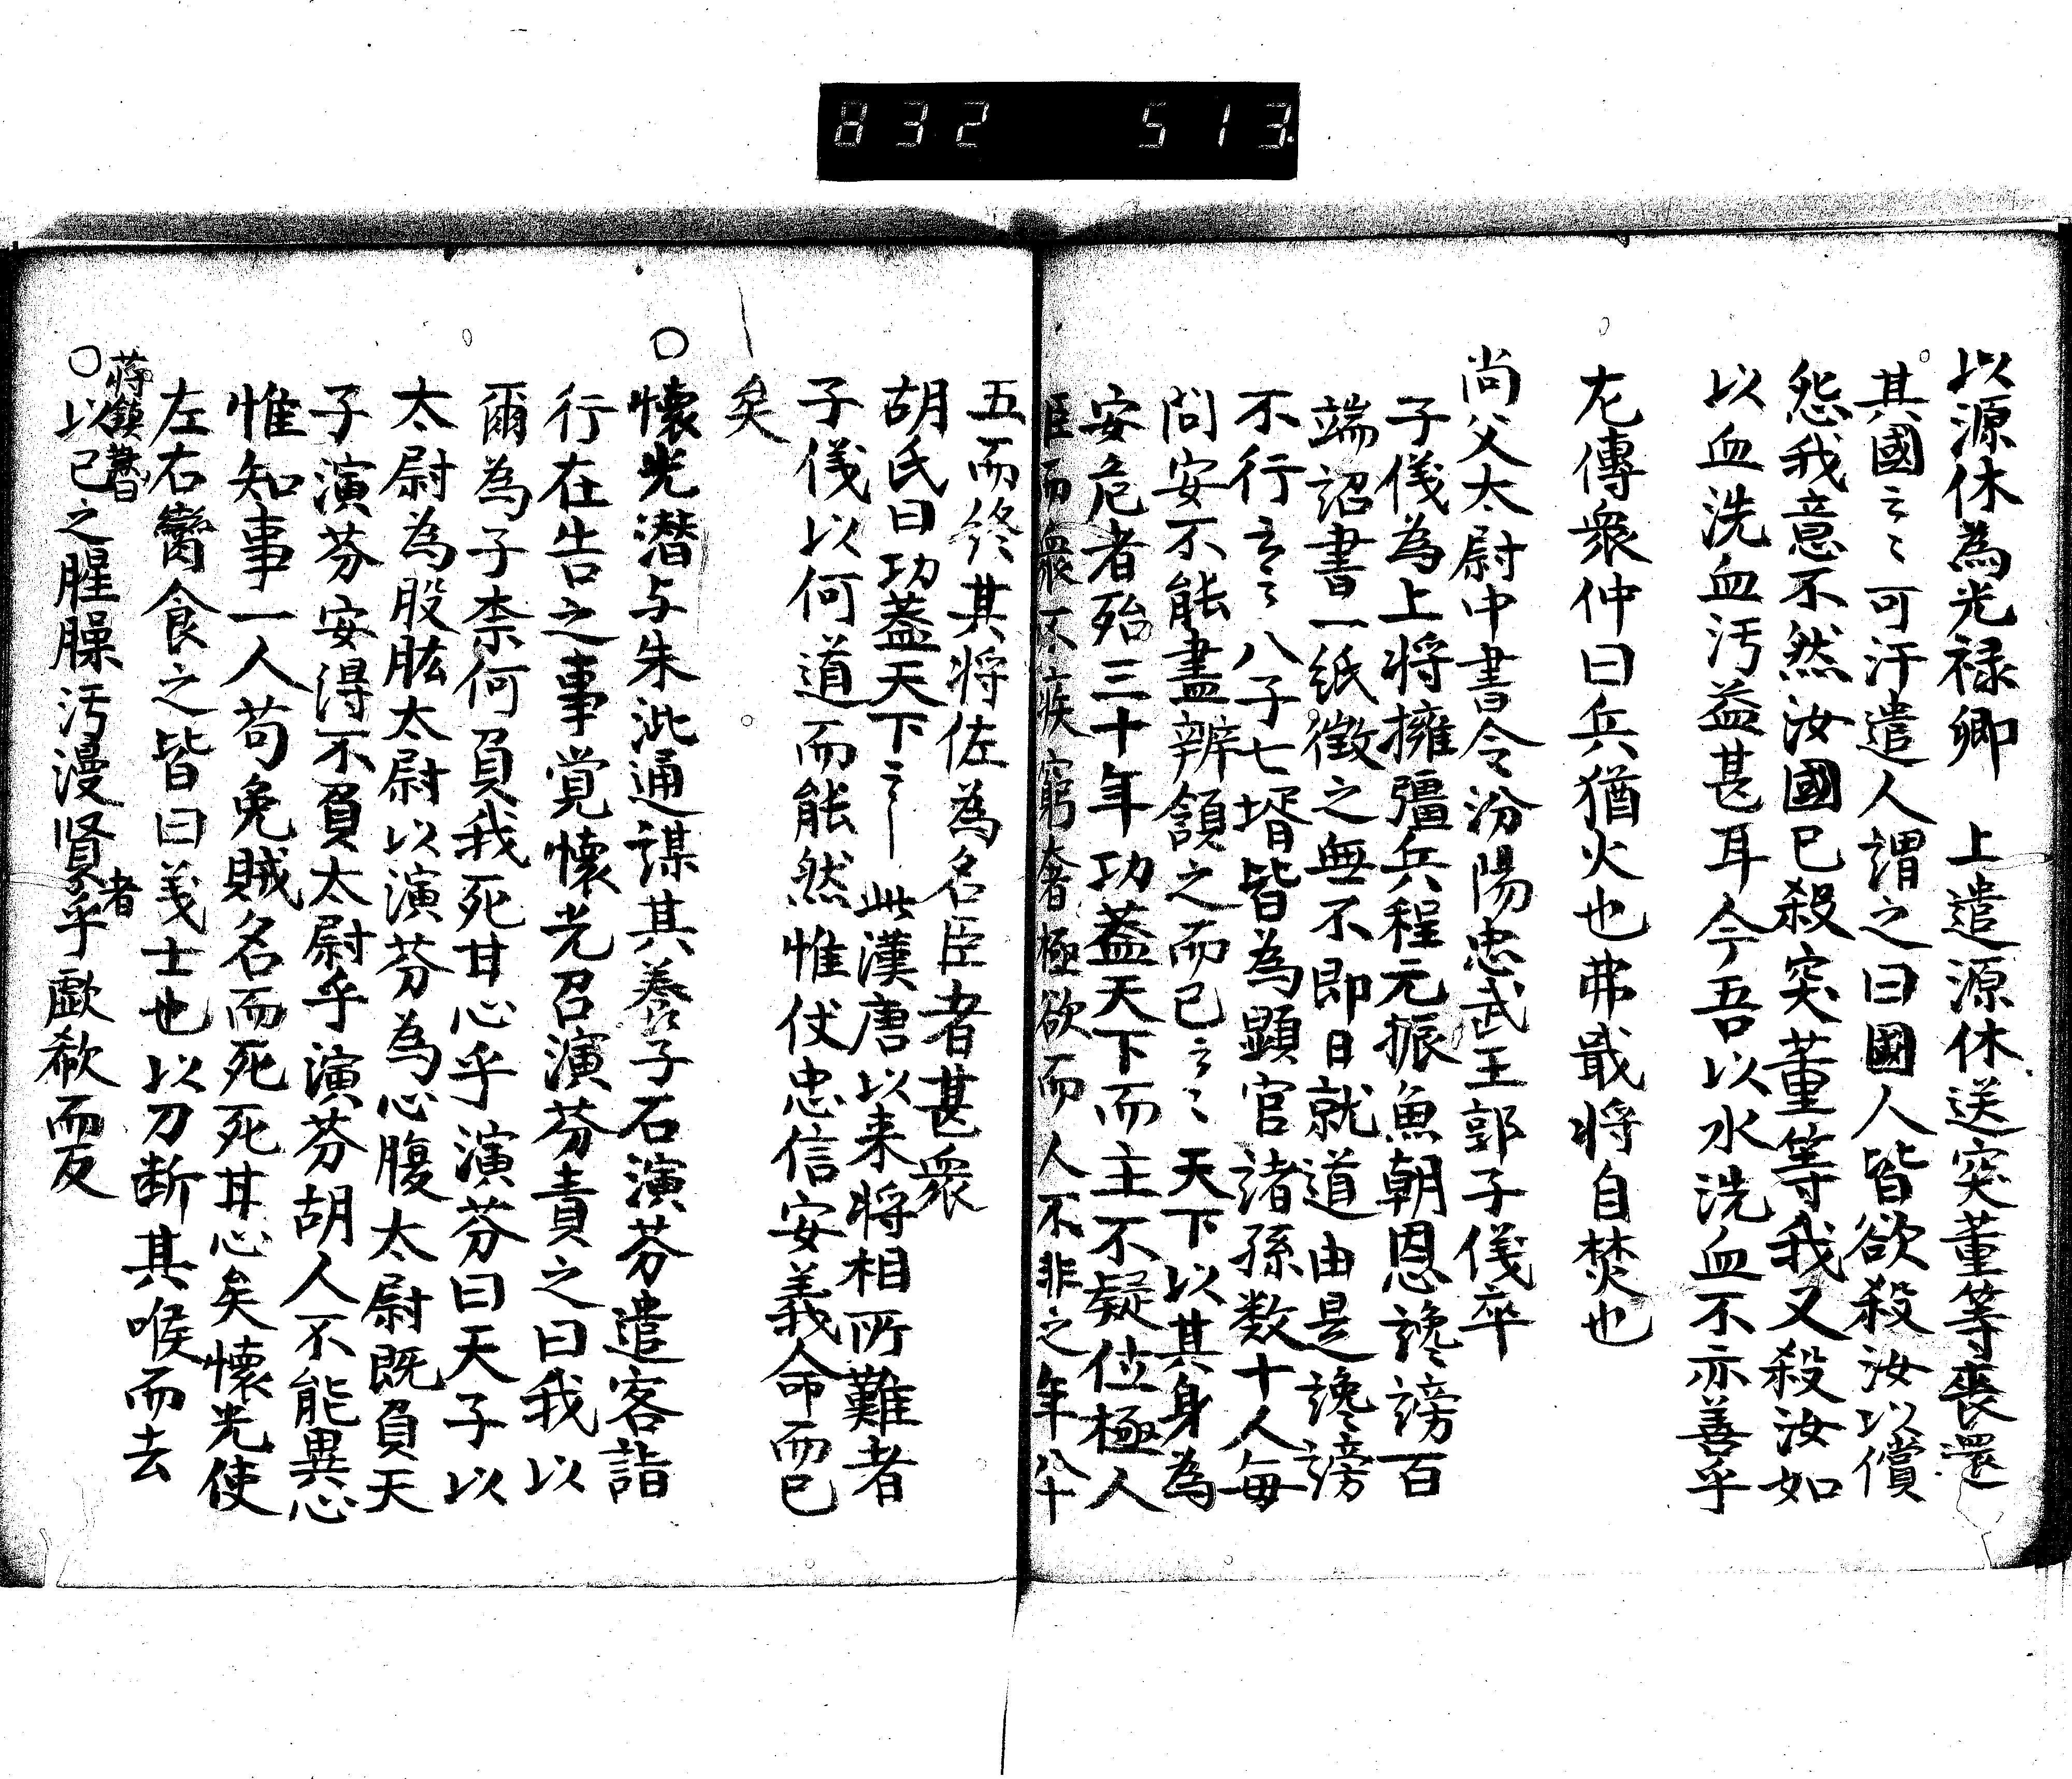 832 513
以源休為光祿卿 上遣源休送突董等喪還
其國云々可汗遣人謂之曰國人皆欲殺汝以償
怨我意不然汝國已殺突董等我又殺汝如
以血洗血汚益甚耳今吾以水洗血不亦善乎
左傳衆仲曰兵猶火也弗戢将自焚也
尚父太尉中書令汾陽忠武王郭子儀卒
子儀為上将擁彊兵程元振魚朝恩讒謗百
端詔書一紙徵之無不即日就道由是讒謗
不行云々八子七壻皆為顯官諸孫数十人每
問安不能盡辨頷之而已云々天下以其身為
安危者殆三十年功蓋天下而主不疑位極人
臣而衆不疾窮奢極欲而人不非之年八十
五而終其将佐為名臣者甚衆
胡氏曰功蓋天下云――此漢唐以来将相所難者
子儀以何道而能然惟仗忠信安義命而已
矣
○懷光潜与朱泚通謀其養子石演芬遣客詣
行在告之事覚懷光召演芬責之曰我以
爾為子柰何負我死甘心乎演芬曰天子以
太尉為股肱太尉以演芬為心腹太尉既負天
子演芬安得不負太尉乎演芬胡人不能異心
惟知事一人苟免賊名而死死甘心矣懷光使
左右臠食之皆曰義士也以刀断其喉而去
蒋鎮歎曰 者
○以己之腥臊汚漫賢乎歔欷而反